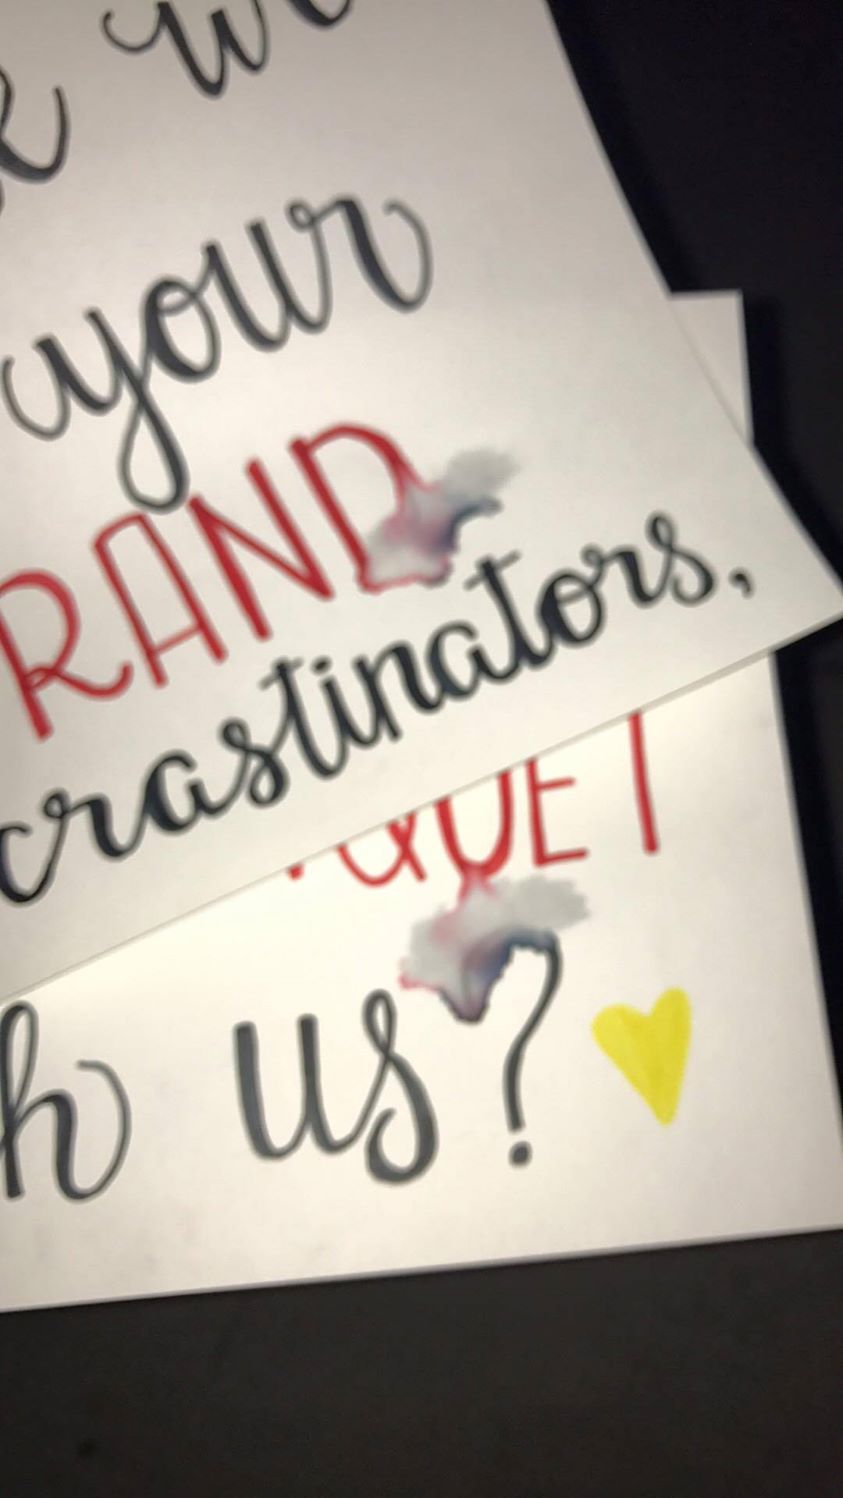 your
RAND
crastinators,
QUET
h us?